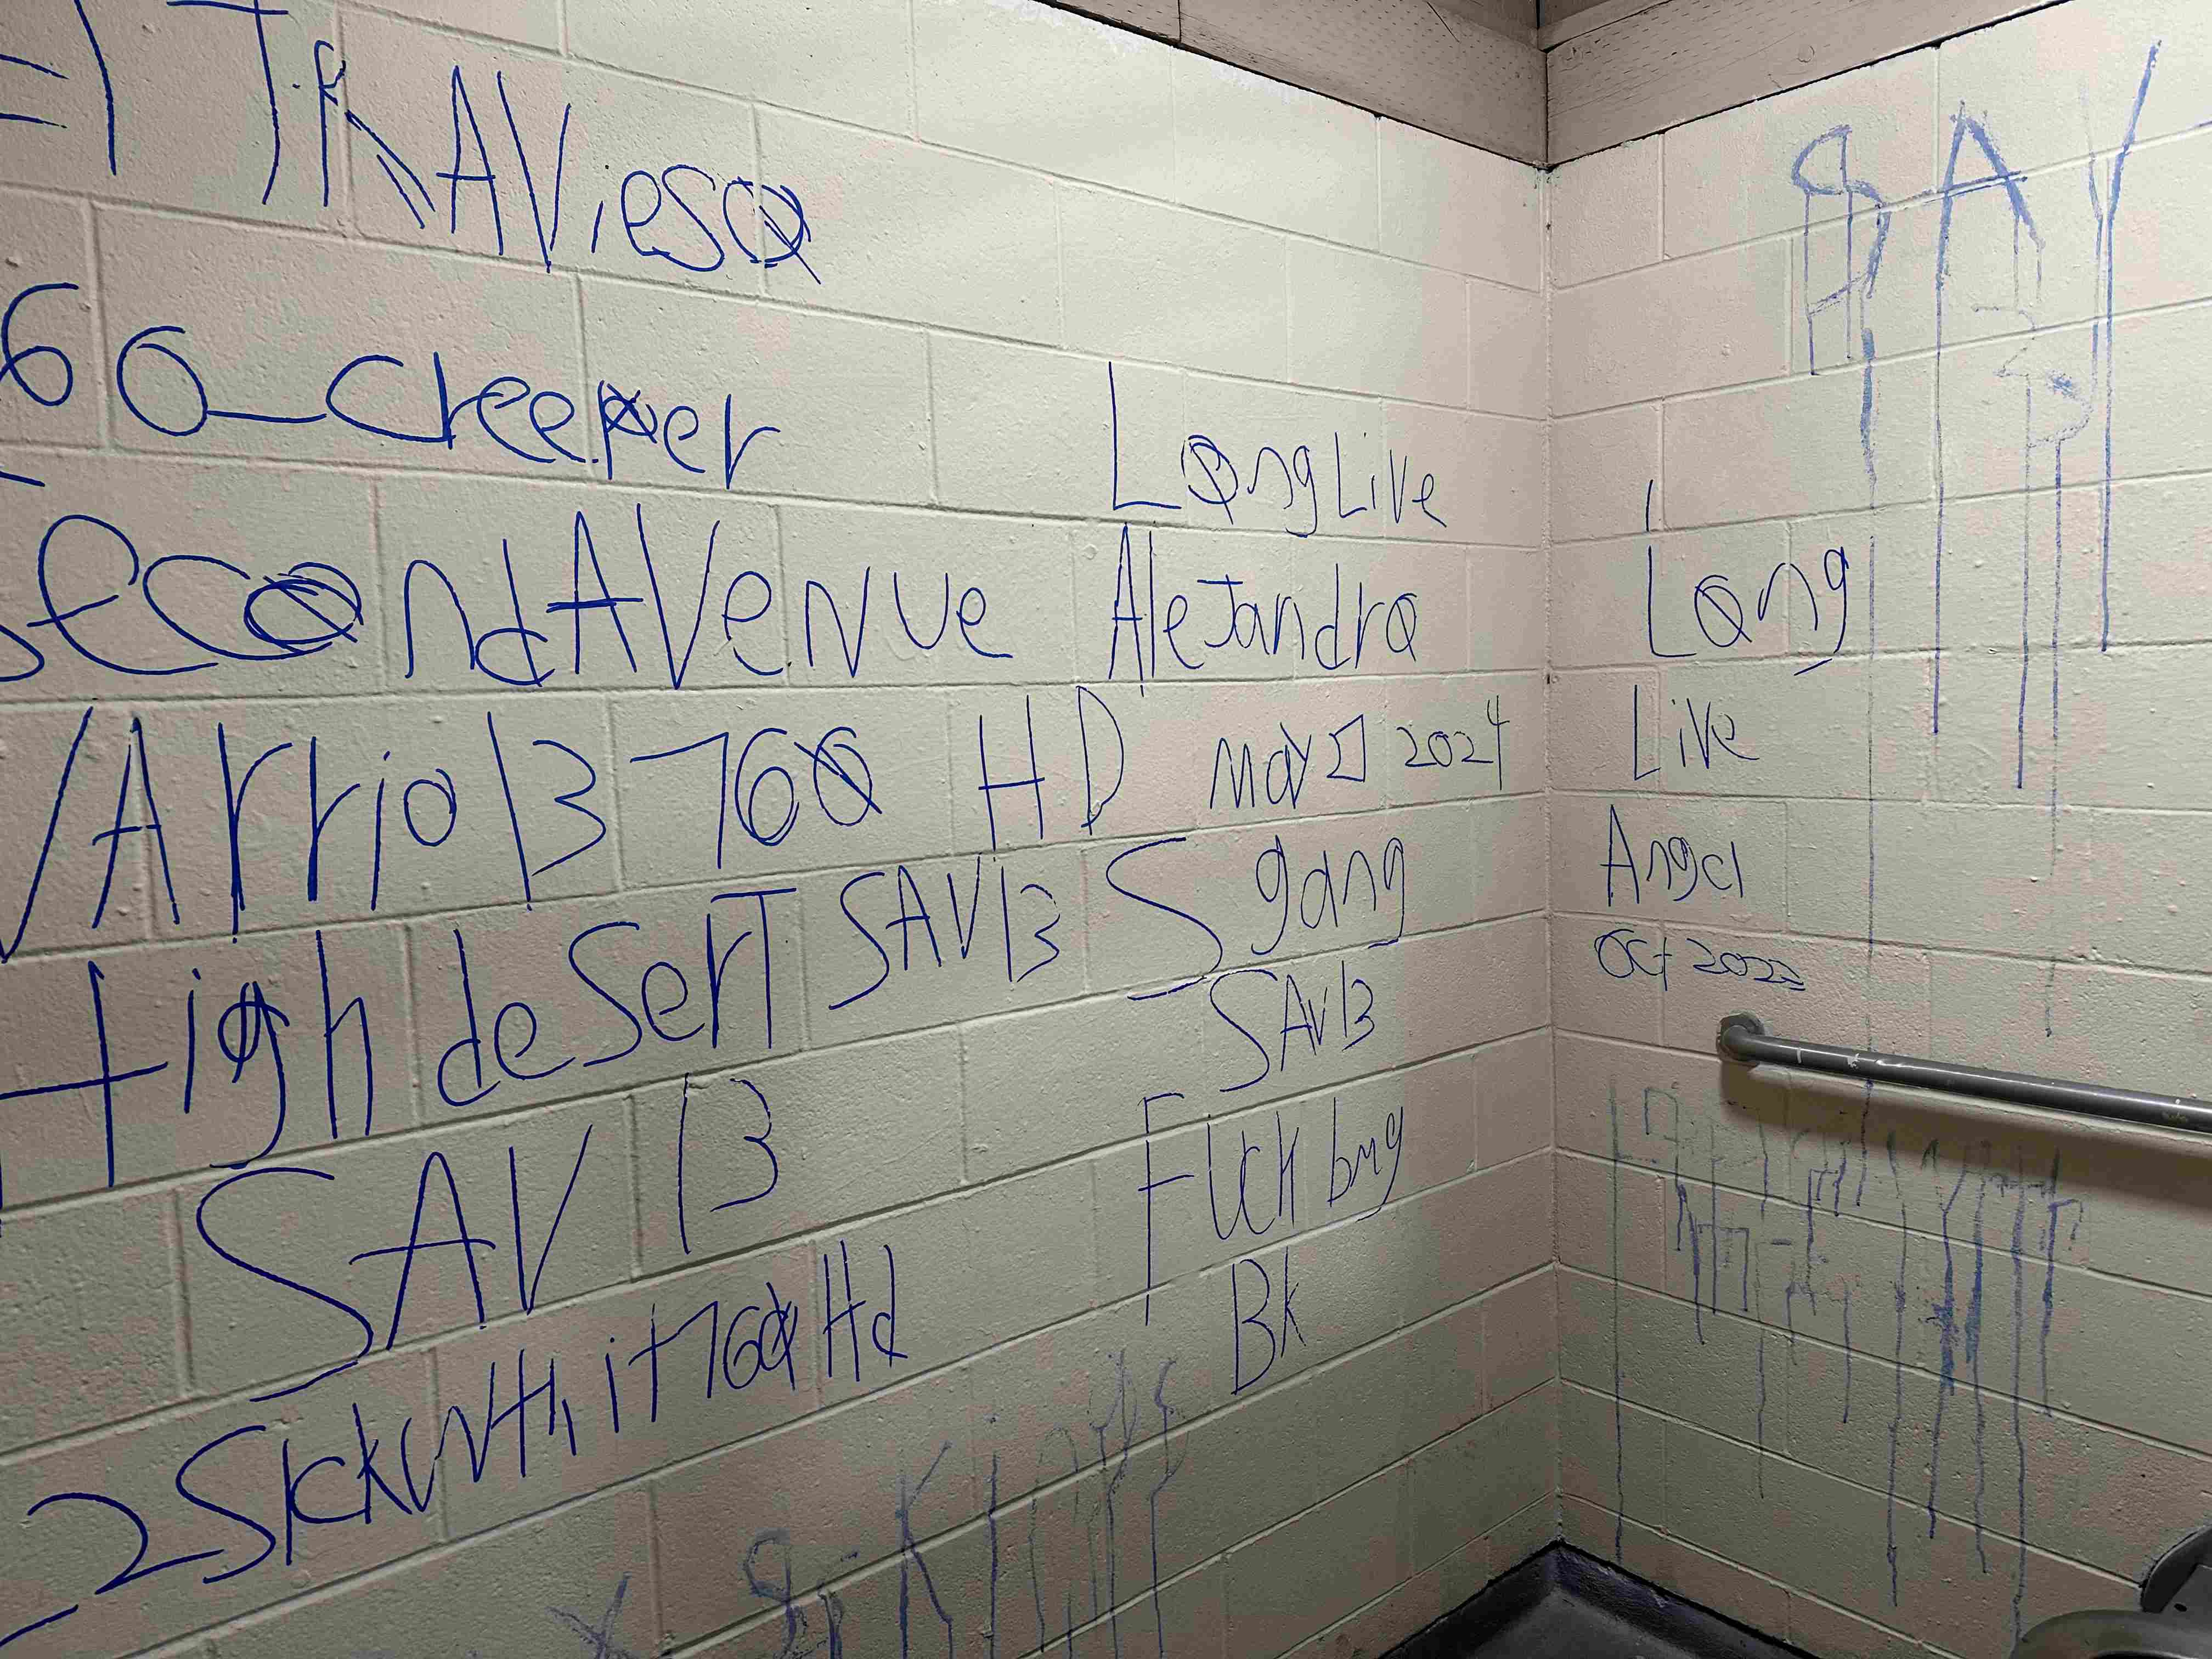 El TRAVieso
60_creeper
SecondAVeNue
VArrio 13 760 HD
High deSerT SAV13
SAV 13
2SickWith it 760 Hd
Long Live
AleJandro
May 2024
S gang
SAV13
FUck bmg
Bk
Long
Live
Angel
Oct 2022
SAV